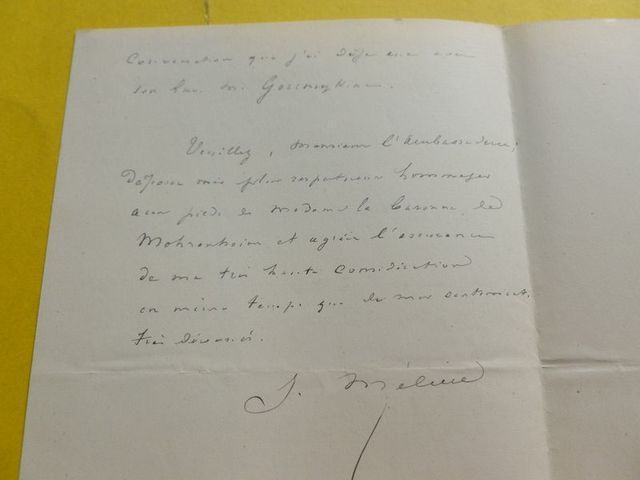 conversation que j'ai déjà eue avec
son Exc. Mr.
Veuillez, Monsieur l'Ambassadeur,
déposer mes plus respectueux hommages
aux pieds de Madame la Baronne de
Mohrenheim et agréer l'assurance
de ma très haute considération
en même temps que de mes sentiments
très dévoués.
J. Méline